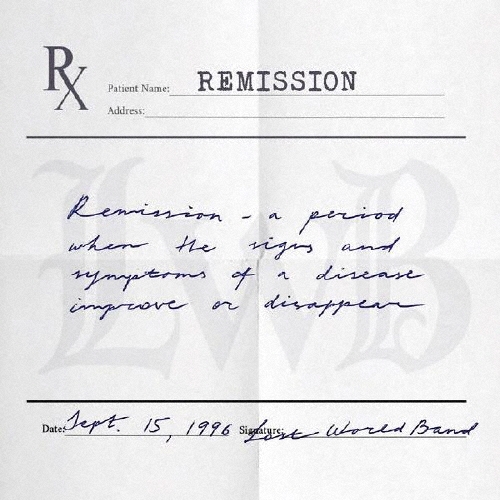 Rx
Patient Name: REMISSION
Address:
LWB
Remission - a period
when the signs and
symptoms of a disease
improve or disappear
Date: Sept. 15, 1996 Signature: Lost World Band